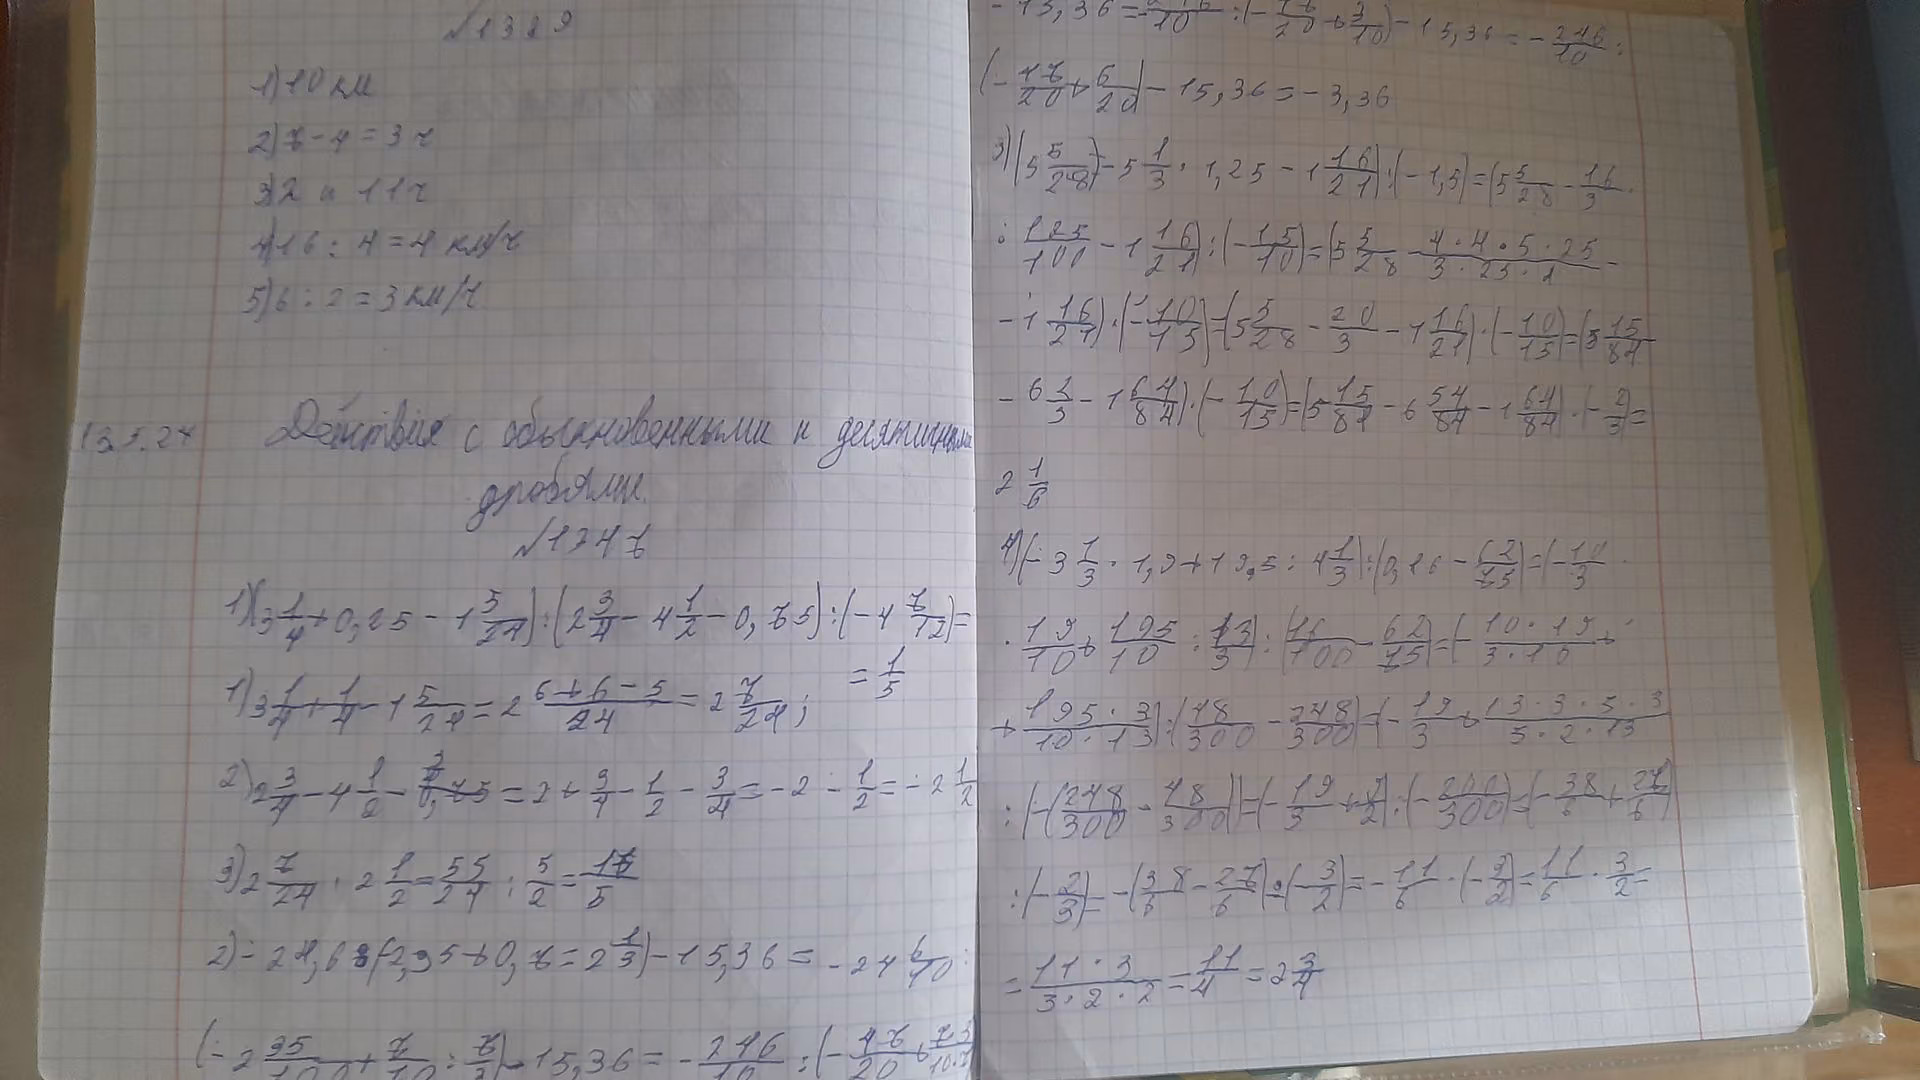 №1389
1) 10 км
2) 7 - 4 = 3 ч
3) 2 и 11 ч
4) 16 : 4 = 4 км/ч
5) 6 : 2 = 3 км/ч
13.5.24 Действия с обыкновенными и десятичными
дробями.
1) (3 1/4 + 0,25 - 1 5/24) : (2 3/4 - 4 1/2 - 0,75) : (-4 7/12) =
= 1/5
1) 3 1/4 + 1/4 - 1 5/24 = 2 (6+6-5)/24 = 2 7/24;
2) 2 3/4 - 4 1/2 - 3/4 = 2 + 3/4 - 1/2 - 3/4 = -2 - 1/2 = -2 1/2
3) 2 7/24 : 2 1/2 = 55/24 : 5/2 =
2) - 24,6 : (-2,35 + 0,7 : 2 1/3) - 15,36 = -24 6/10 :
(-2 35/100 + 7/10 : 7/3) - 15,36 = -246/10 : (-47/20 + 7·3/10·7)
- 15,36 = -246/10 : (-47/20 + 3/10) - 15,36 = -246/10 :
(-47/20 + 6/20) - 15,36 = -3,36
3) (5 5/28 - 5 1/3 · 1,25 - 1 16/21) : (-1,5) = (5 5/28 - 16/3 ·
· 125/100 - 1 16/21) : (-15/10) = (5 5/28 - 4·4·5·25/3·25·4 -
- 1 16/21) · (-10/15) = (5 5/28 - 20/3 - 1 16/21) · (-10/15) = (5 15/84
- 6 2/3 - 1 64/84) · (-10/15) = (5 15/84 - 6 54/84 - 1 64/84) · (-2/3) =
2 1/6
4) (-3 1/3 · 1,9 + 19,5 : 4 1/3) : (0,16 - 62/75) = (-10/3 ·
· 19/10 + 195/10 : 13/3) : (16/100 - 62/75) = (-10·19/3·10 +
+ 195·3/10·13) : (48/300 - 248/300) = (-19/3 + 13·3·5·3/5·2·13)
: (-(248/300 - 48/300)) = (-19/3 + 9/2) : (-200/300) = (-38/6 + 27/6)
: (-2/3) = -(38/6 - 27/6) · (-3/2) = -11/6 · (-3/2) = 11/6 · 3/2 =
= 11·3/3·2·2 = 11/4 = 2 3/4